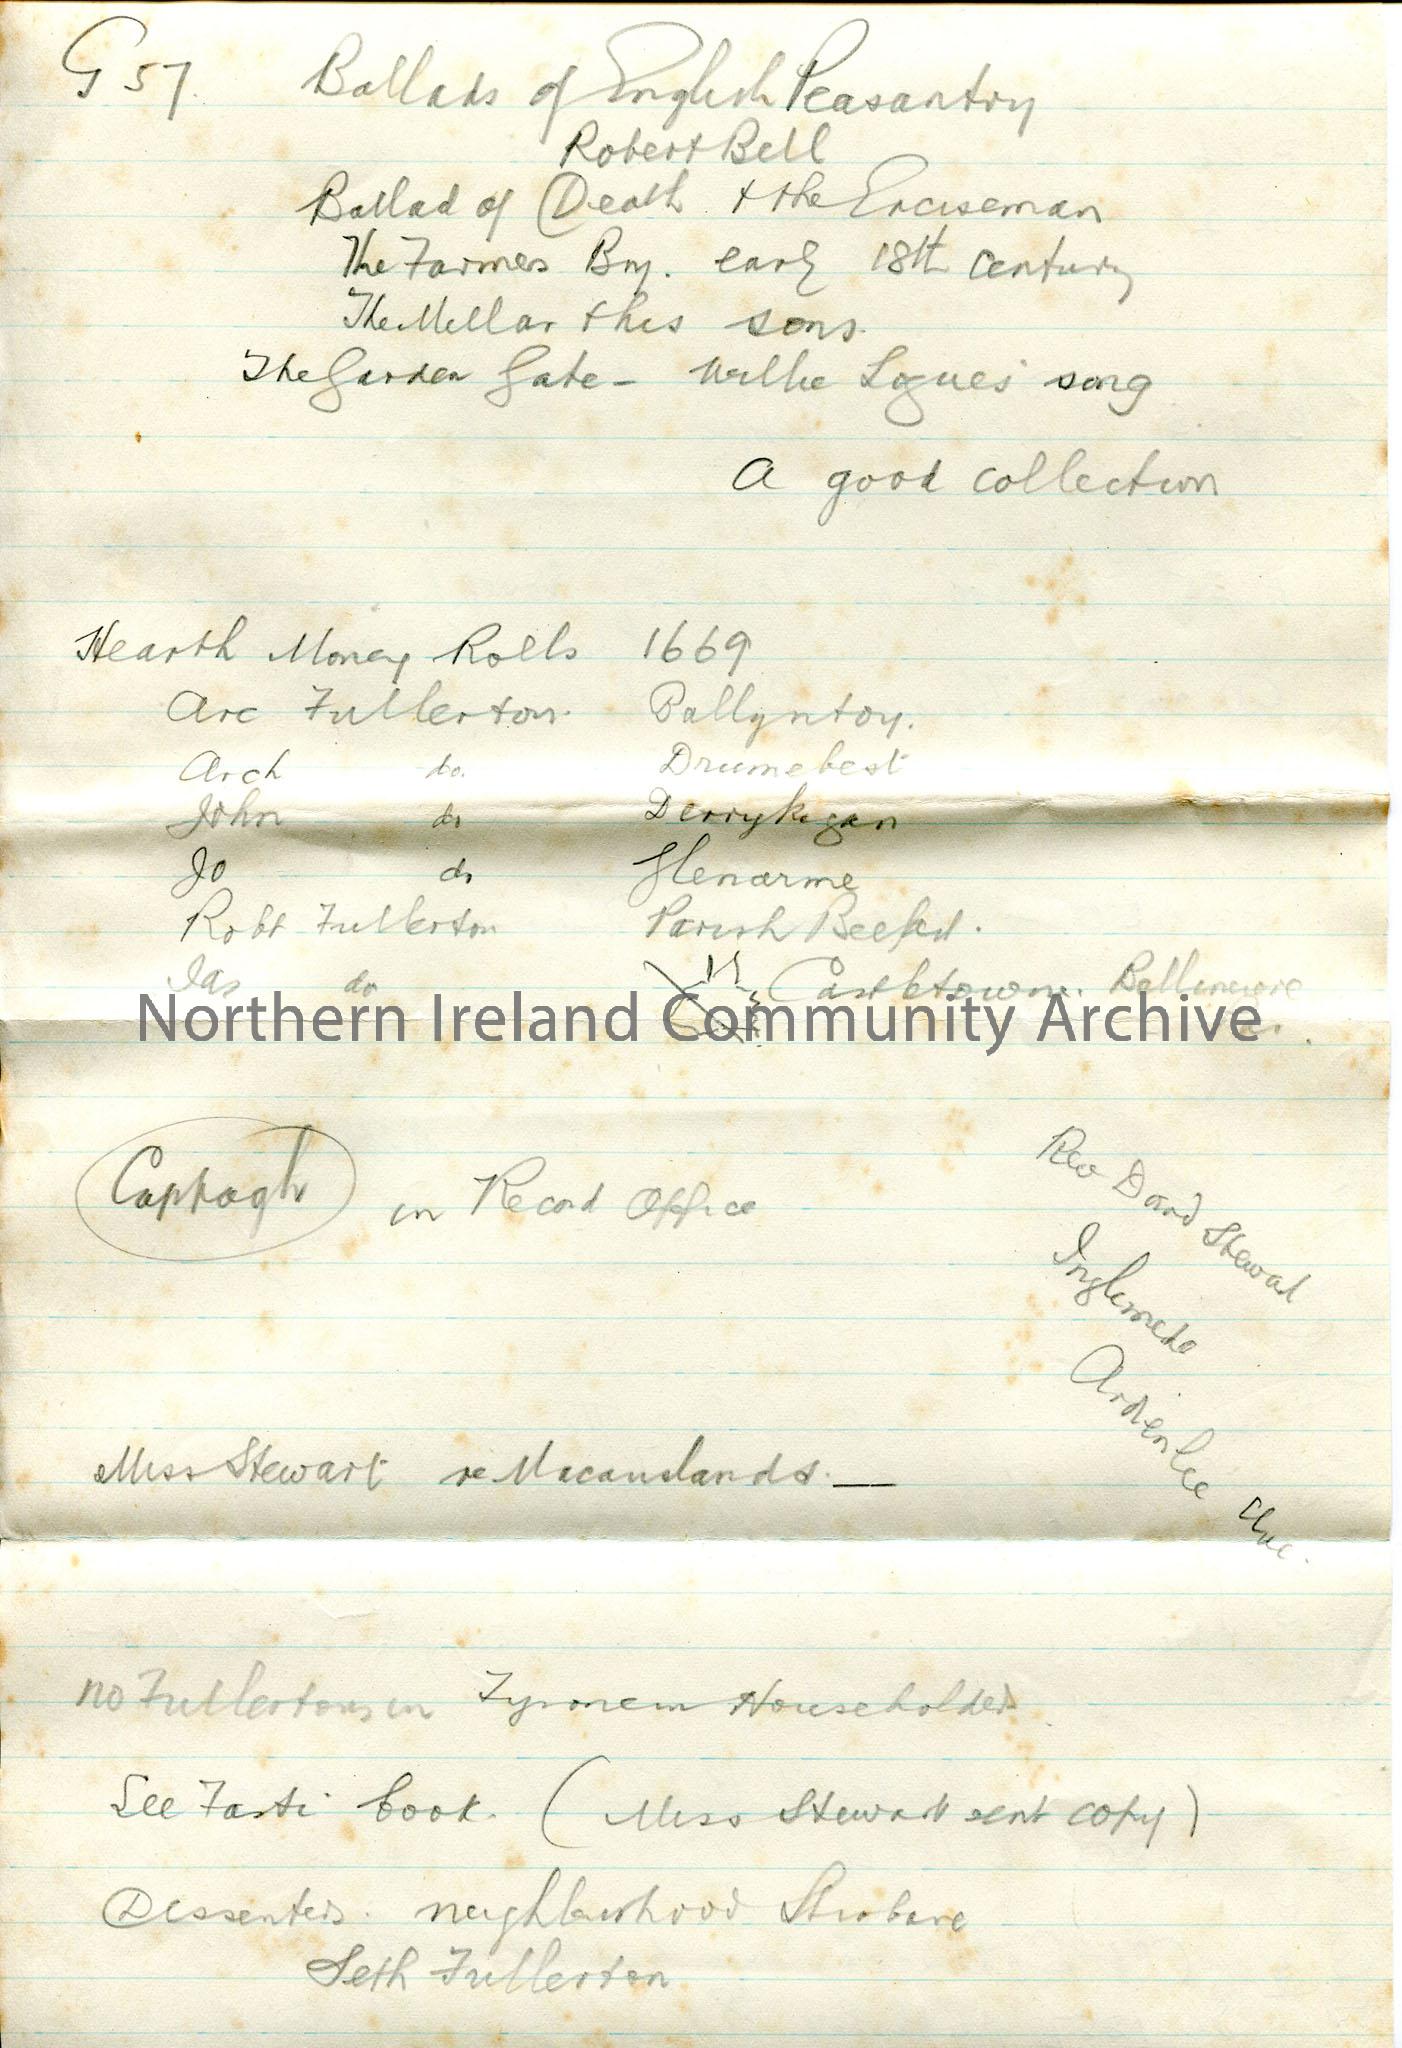 G 57. Ballads of English Peasantry
Robert Bell
Ballad of Death + the Exciseman
The Farmers Boy. early 18th century
The Millar + his sons.
The Garden Gate - Willie Logues' song
A good collection
Hearth Money Rolls 1669
Arc Fullerton. Ballyntoy.
Arch do. Drumebest
John do Derrykegan
Jo do Glenarme
Robt Fullerton Parish Beefert.
Jas do Castletowne.
Northern Ireland Community Archive
Cappagh in Record Office
Rev David Stewart
Ardenlee Ave.
Miss Stewart re Macauslands. —
no Fullertons in Tyrone in Householders
See Fasti book. (Miss Stewart sent copy)
Dissenters. neighbourhood Strabane
Seth Fullerton